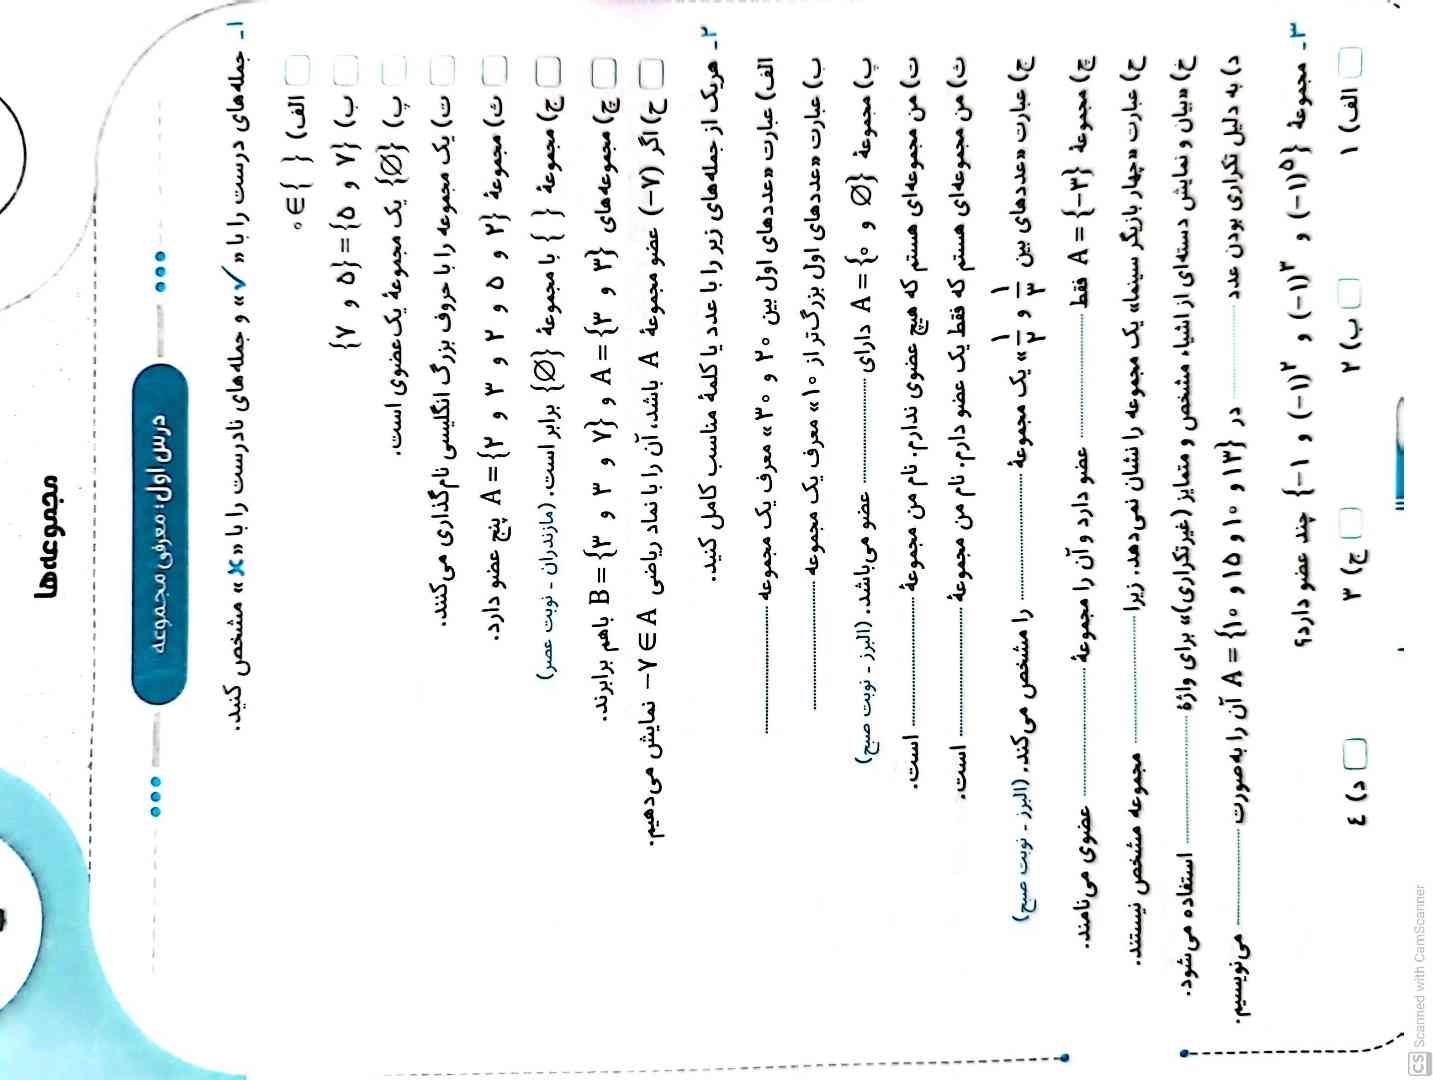 مجموعه‌ها
درس اول: معرفی مجموعه
۱- جمله‌های درست را با « ✓ » و جمله‌های نادرست را با « × » مشخص کنید.
الف) { } ∋ ۰
ب) {۷ و ۵} = {۵ و ۷}
پ) {∅} یک مجموعهٔ یک‌عضوی است.
ت) یک مجموعه را با حروف بزرگ انگلیسی نام‌گذاری می‌کنند.
ث) مجموعهٔ A = {۲ و ۳ و ۲ و ۵ و ۲} پنج عضو دارد.
ج) مجموعهٔ { } با مجموعهٔ {∅} برابر است. (مازندران - نوبت عصر)
چ) مجموعه‌های A = {۳ و ۳ و ۷} و B = {۳ و ۳ و ۷} باهم برابرند.
ح) اگر (۷−) عضو مجموعهٔ A باشد، آن را با نماد ریاضی −۷ ∈ A نمایش می‌دهیم.
۲- هریک از جمله‌های زیر را با عدد یا کلمهٔ مناسب کامل کنید.
الف) عبارت «عددهای اول بین ۲۰ و ۳۰» معرف یک مجموعه ..........
ب) عبارت «عددهای اول بزرگ‌تر از ۱۰» معرف یک مجموعه ..........
پ) مجموعهٔ A = {۰ و ∅} دارای .......... عضو می‌باشد. (البرز - نوبت صبح)
ت) من مجموعه‌ای هستم که هیچ عضوی ندارم. نام من مجموعهٔ .......... است.
ث) من مجموعه‌ای هستم که فقط یک عضو دارم. نام من مجموعهٔ .......... است.
ج) عبارت «عددهای بین ۱/۳ و ۱/۲» یک مجموعهٔ .......... را مشخص می‌کند. (البرز - نوبت صبح)
چ) مجموعهٔ A = {−۳} فقط .......... عضو دارد و آن را مجموعهٔ .......... عضوی می‌نامند.
ح) عبارت «چهار بازیگر سینما» یک مجموعه را نشان نمی‌دهد. زیرا .......... مجموعه مشخص نیستند.
خ) «بیان و نمایش دسته‌ای از اشیاء مشخص و متمایز (غیرتکراری)» برای واژهٔ .......... استفاده می‌شود.
د) به دلیل تکراری بودن عدد .......... در A = {۱۰ و ۱۵ و ۱۰ و ۱۳} آن را به‌صورت .......... می‌نویسیم.
۳- مجموعهٔ {−۱ و (−۱)^۲ و (−۱)^۳ و (−۱)^۵} چند عضو دارد؟
الف) ۱ ب) ۲ ج) ۳ د) ۴
CS Scanned with CamScanner